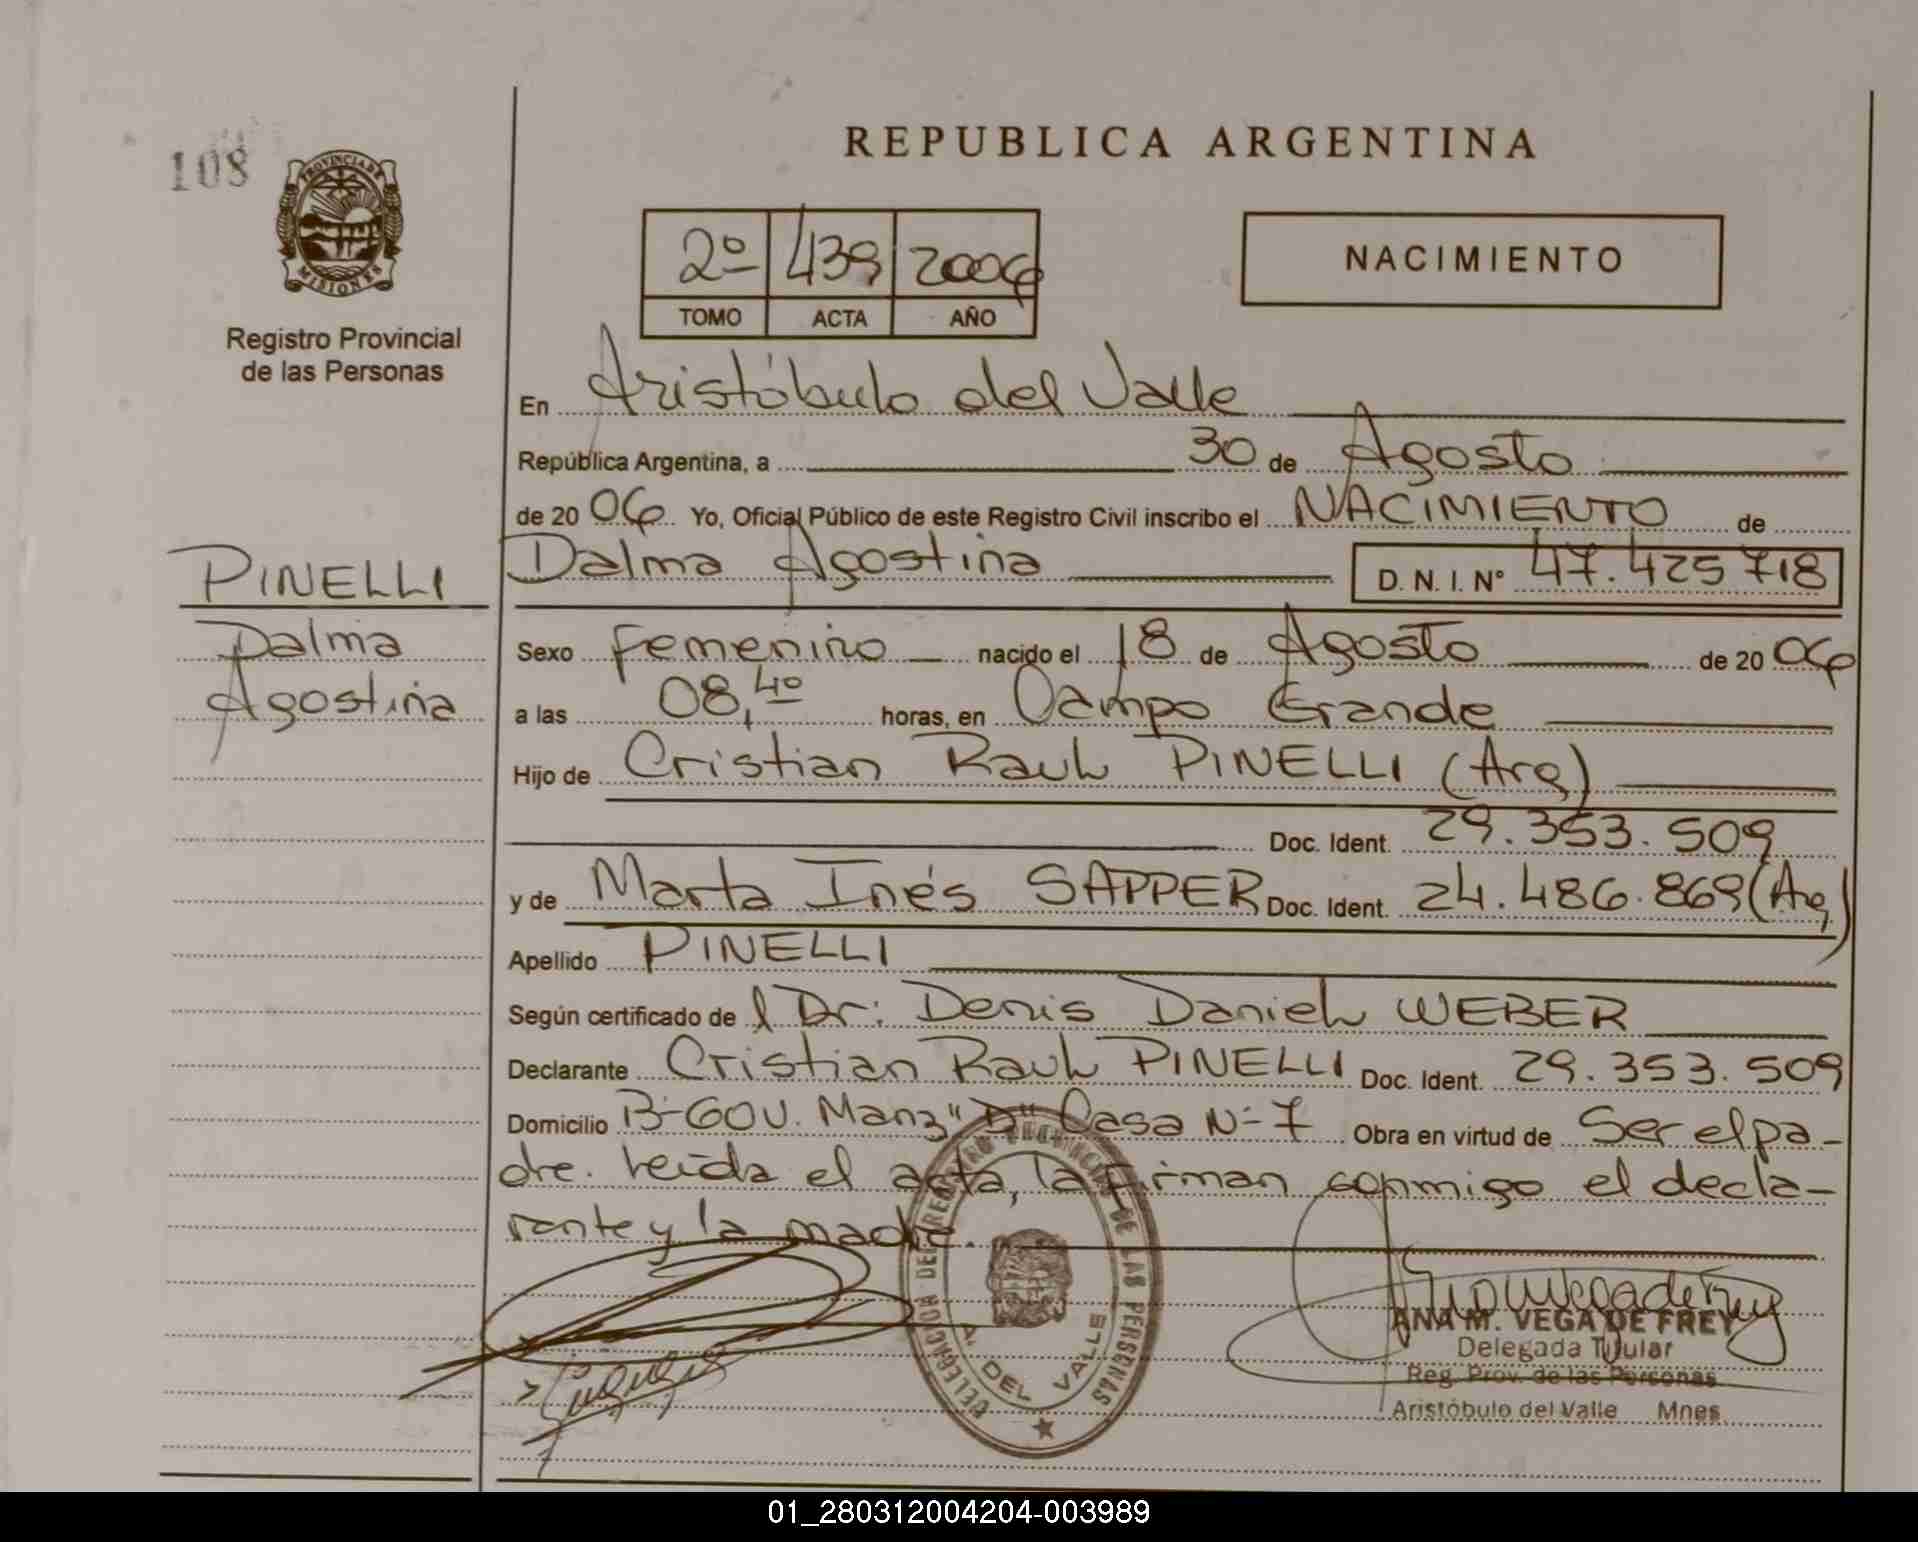 108
PROVINCIA DE
MISIONES
Registro Provincial
de las Personas
REPUBLICA ARGENTINA
2º 439 2006
TOMO ACTA AÑO
NACIMIENTO
En Aristóbulo del Valle
República Argentina, a 30 de Agosto
de 20 06 Yo, Oficial Público de este Registro Civil inscribo el NACIMIENTO de
PINELLI
Dalma Agostina D. N. I. Nº 47.425718
Dalma
Agostina
Sexo femenino nacido el 18 de Agosto de 20 06
a las 08,40 horas, en Campo Grande
Hijo de Cristian Raul PINELLI (Arg)
Doc. Ident. 29.353.509
y de Marta Inés SAPPER Doc. Ident. 24.486.869 (Arg)
Apellido PINELLI
Según certificado de l Dr: Denis Daniel WEBER
Declarante Cristian Raul PINELLI Doc. Ident. 29.353.509
Domicilio B-GOU. Manz "D" Casa N-7 Obra en virtud de Ser el pa-
dre. leida el acta, la firman conmigo el decla-
rante y la madre.
DELEGACION DEL REGISTRO PROVINCIAL DE LAS PERSONAS
A. DEL VALLE
ANA M. VEGA DE FREY
Delegada Titular
Reg. Prov. de las Personas
Aristóbulo del Valle Mnes.
01_280312004204-003989